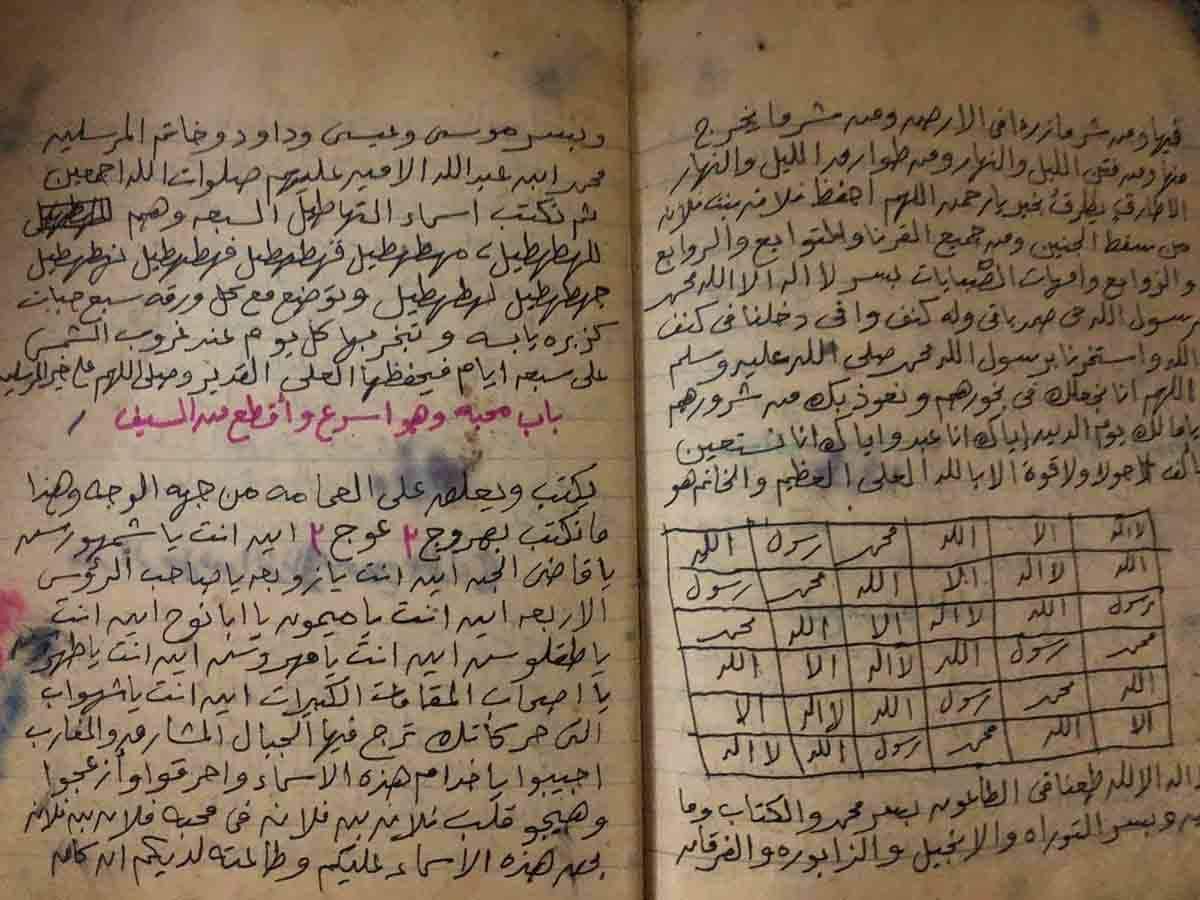 فيها ومن شر ما زرء في الارض ومن شر ما يخرج
منها ومن فتن الليل والنهار ومن طوارق الليل والنهار
الا طارق يطرق بخير يا رحمن اللهم احفظ فلانه بنت فلانه
من سقط الجنين ومن جميع القرنا والتوابع والروابع
والزوابع وامهات الصبيانات بسر لا اله الا الله محمد
رسول الله
الله واستخرنا برسول الله محمد صلى الله عليه وسلم
اللهم انا نجعلك في نحورهم ونعوذ بك من شرورهم
يا مالك يوم الدين اياك انا عبد واياك انا نستعين
الف لا حولا ولا قوة الا بالله العلي العظيم والخاتم هو
لا اله الا الله محمد رسول الله
الله لا اله الا الله محمد رسول
رسول الله لا اله الا الله محمد
محمد رسول الله لا اله الا الله
الله محمد رسول الله لا اله الا
الا الله محمد رسول الله لا اله
اله الا الله طعنا في الطاعون بسر محمد والكتاب وما
وبسر التوراه والانجيل والزابوره والفرقان
وبسر موسى وعيسى وداود وخاتم المرسلين
محمد ابن عبد الله الامين عليهم صلوات الله اجمعين
ثم تكتب اسماء التهاطيل السبعه وهم
للهطهطيل مهطهطيل قهطهطيل فهطهطيل نهطهطيل
جهطهطيل لهطهطيل وتوضع مع كل ورقه سبع حبات
كزبره يابسه وتبخر بها كل يوم عند غروب الشمس
على سبعه ايام فيحفظها العلي القدير وصلى اللهم على خير المرسلين
باب محبه وهو اسرع وأقطع من السيف
يكتب ويعلق على الحمامه من جهه الوجه وهذا
ما تكتب بهروج ٢ عوج ٢ اين انت يا شمهورس
يا قاضي الجن اين انت يا زوبعه يا صاحب الرؤس
الاربعه اين انت يا ميمون يا ابا نوح اين انت
يا طقلوس اين انت يا مهروس اين انت يا
يا اصحاب المقامات الكبيرات اين انت يا شهواب
التى حركاتك ترج فيها الجبال المشارق والمغارب
اجيبوا يا خدام هذه الاسماء واحرقوا وأزعجوا
وهيجو قلب فلان بن فلانه في محبه فلان بن فلانه
بحق هذه الاسماء عليكم وطاعته لديكم ان كانت